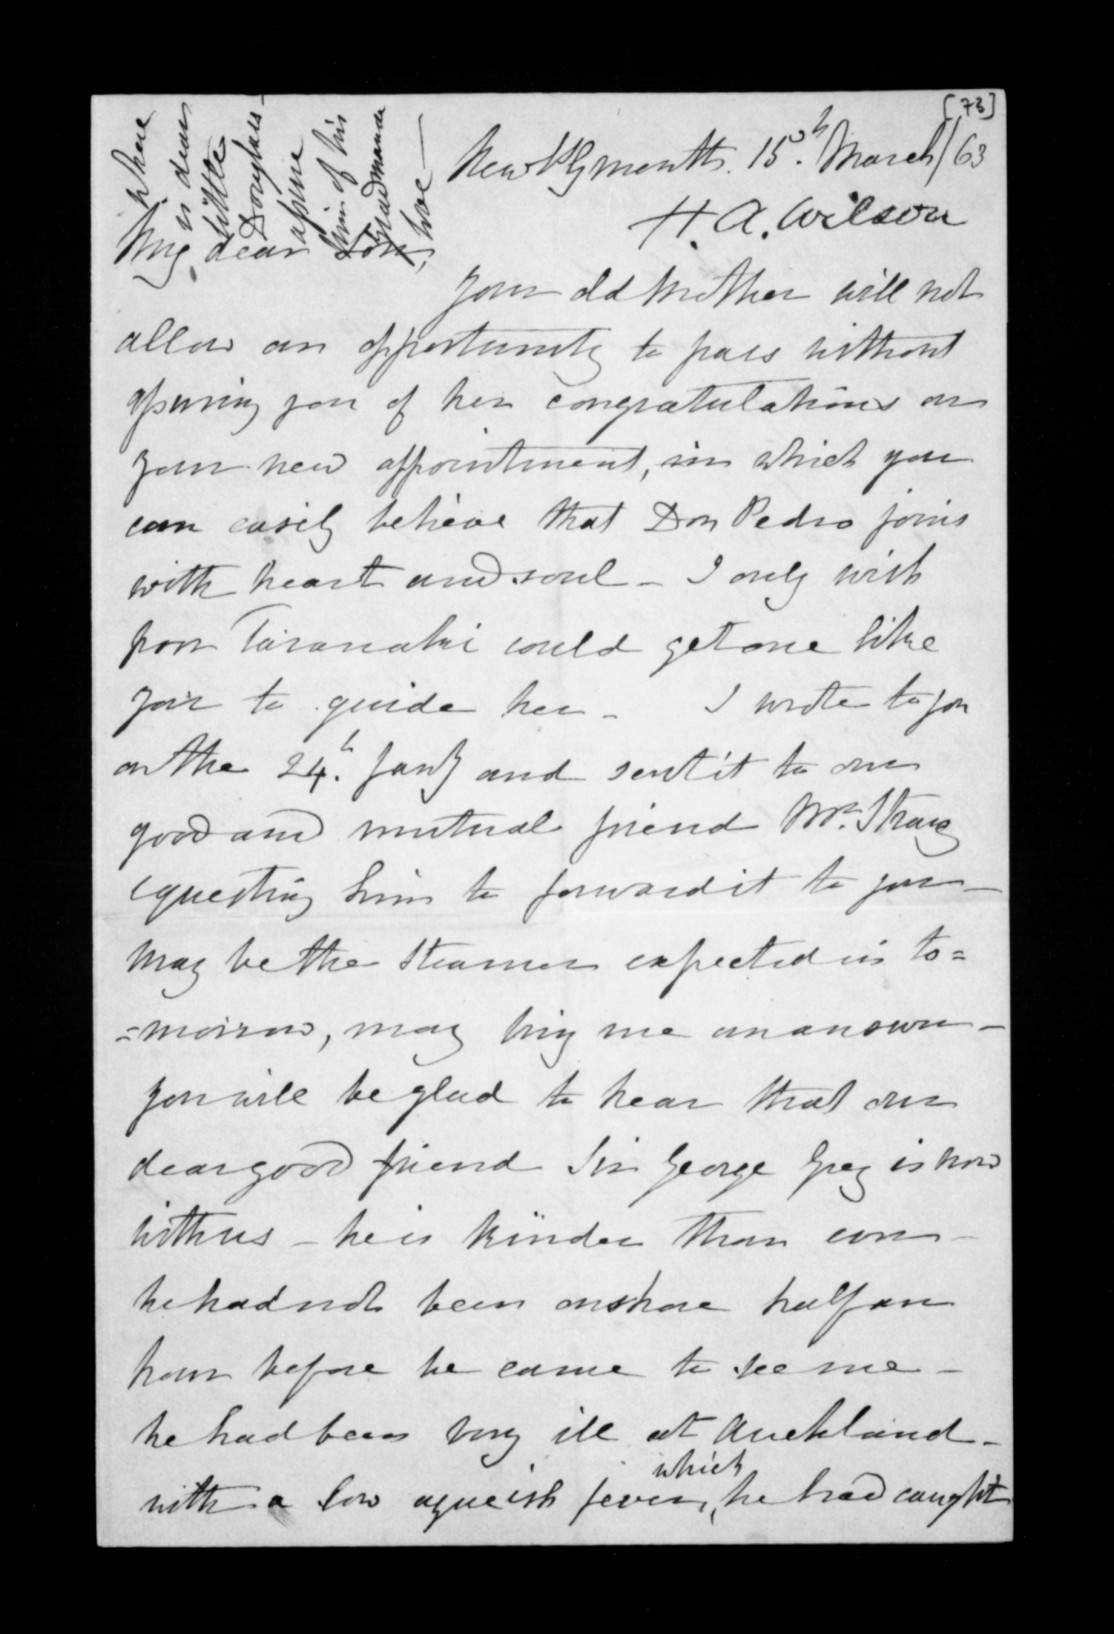 [73]
where
is dear
little
Douglass -
assure
him of his
Grandmama
love —
New Plymouth. 15th. March/63
H. A. Wilson
My dear Son,
Your old Mother will not
allow an opportunity to pass without
assuring you of her congratulations on
your new appointment, in which you
can easily believe that Don Pedro joins
with heart and soul - I only wish
poor Taranaki could get one like
you to guide her - I wrote to you
on the 24.h Jany and sent it to our
good and mutual friend Mr. Strang
requesting him to forward it to you -
May be the Steamer expected in to=
=morrow, may bring me an answer -
You will be glad to hear that our
dear good friend Sir George Grey is now
with us - he is kinder than ever -
he had not been onshore half an
hour before he came to see me -
he had been very ill at Auckland -
with a low agueish fever, which he had caught